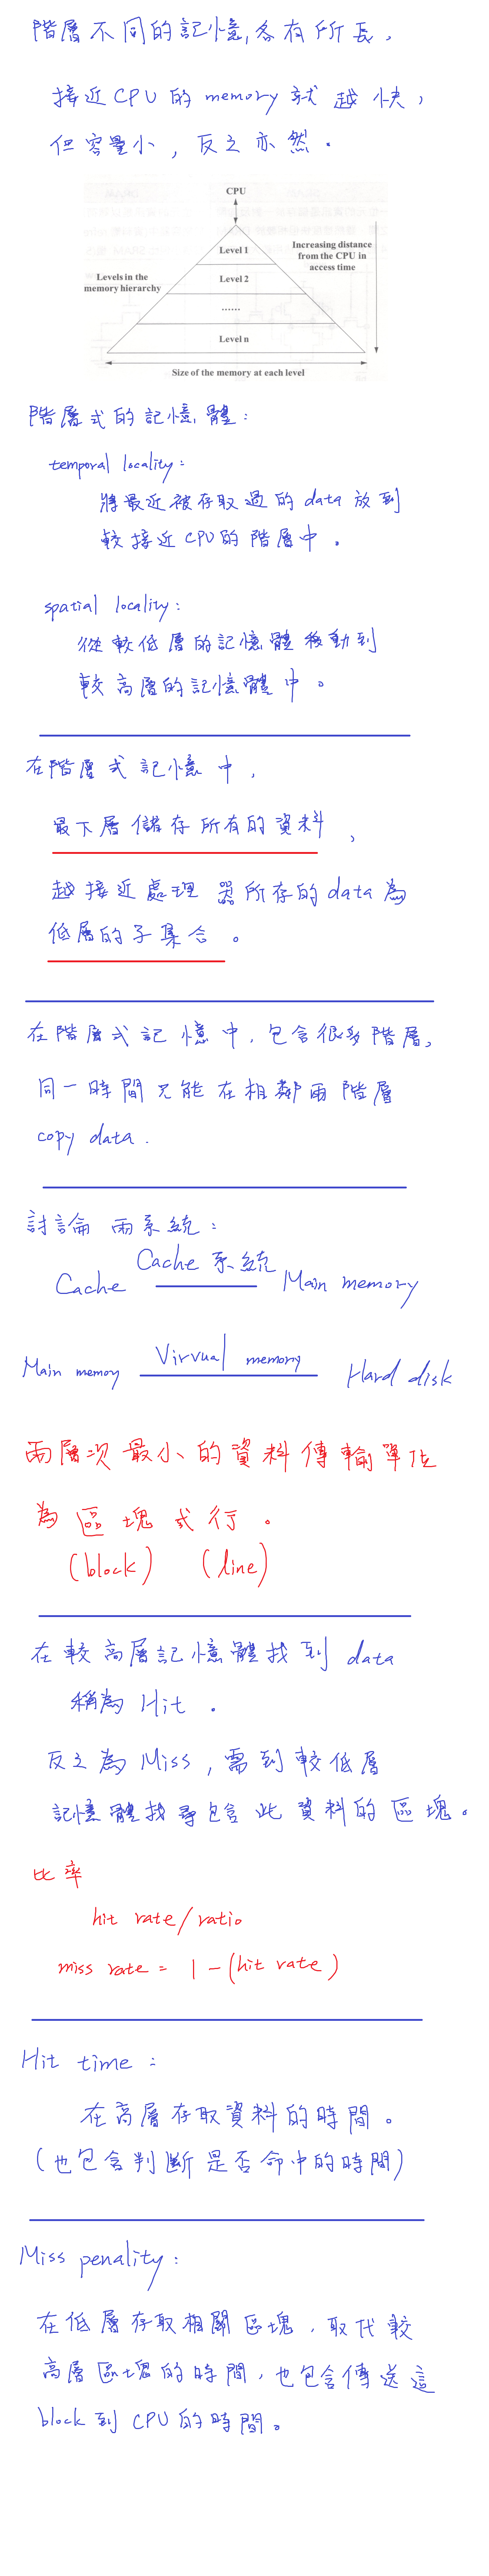 階層不同的記憶,各有所長,
接近CPU的memory就越快,
但容量小,反之亦然。
CPU
Level 1
Increasing distance
from the CPU in
access time
Levels in the
memory hierarchy
Level 2
......
Level n
Size of the memory at each level
階層式的記憶體:
temporal locality:
將最近被存取過的data放到
較接近CPU的階層中。
spatial locality:
從較低層的記憶體移動到
較高層的記憶體中。
在階層式記憶中,
最下層儲存所有的資料,
越接近處理器所存的data為
低層的子集合。
在階層式記憶中,包含很多階層,
同一時間只能在相鄰兩階層
copy data.
討論兩系統:
Cache系統
Cache Main memory
Virvual memory
Main memory Hard disk
兩層次最小的資料傳輸單位
為區塊或行。
(block) (line)
在較高層記憶體找到data
稱為Hit。
反之為Miss,需到較低層
記憶體找尋包含此資料的區塊。
比率
hit rate/ratio
miss rate = 1-(hit rate)
Hit time:
在高層存取資料的時間。
(也包含判斷是否命中的時間)
Miss penality:
在低層存取相關區塊,取代較
高層區塊的時間,也包含傳送這
block到CPU的時間。